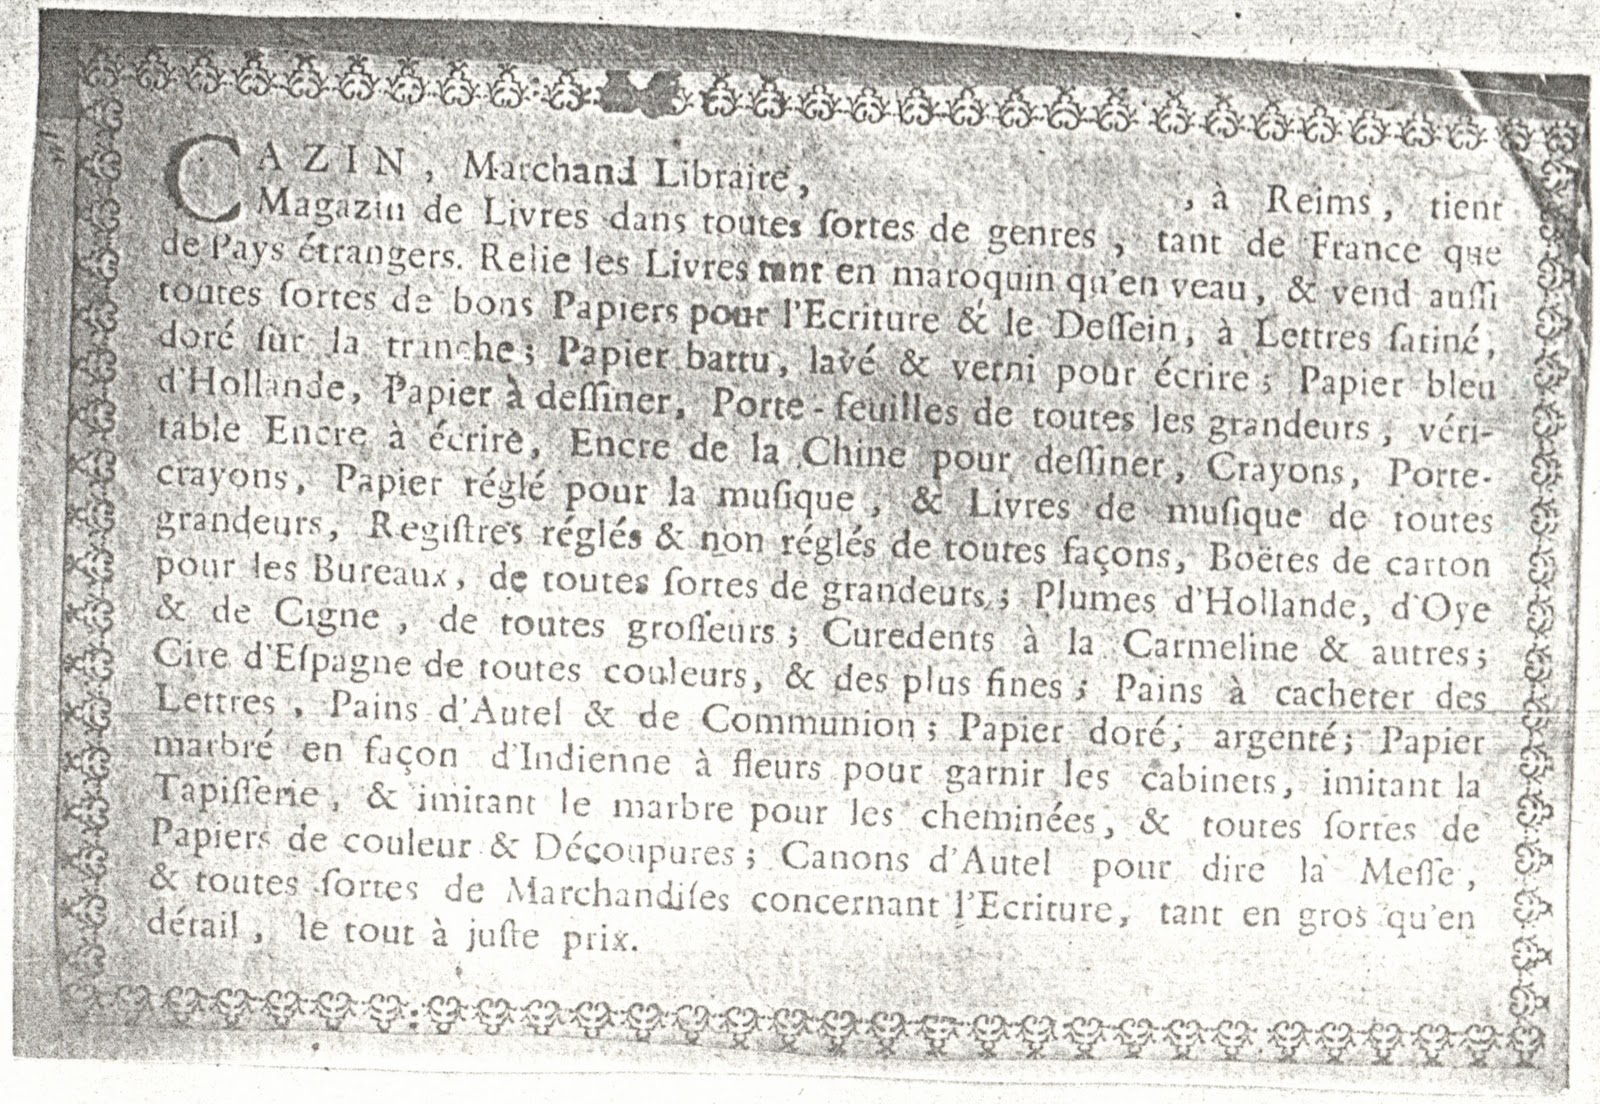 CAZIN, Marchand Libraire, , à Reims, tient
Magazin de Livres dans toutes ſortes de genres, tant de France que
de Pays étrangers. Relie les Livres tant en maroquin qu'en veau, & vend auſſi
toutes ſortes de bons Papiers pour l'Ecriture & le Deſſein, à Lettres ſatiné,
doré ſur la tranche; Papier battu, lavé & verni pour écrire; Papier bleu
d'Hollande, Papier à deſſiner, Porte-feuilles de toutes les grandeurs, véri-
table Encre à écrire, Encre de la Chine pour deſſiner, Crayons, Porte-
crayons, Papier réglé pour la muſique, & Livres de muſique de toutes
grandeurs, Regiſtres réglés & non réglés de toutes façons, Boëtes de carton
pour les Bureaux, de toutes ſortes de grandeurs; Plumes d'Hollande, d'Oye
& de Cigne, de toutes groſſeurs; Curedents à la Carmeline & autres;
Cire d'Eſpagne de toutes couleurs, & des plus fines; Pains à cacheter des
Lettres, Pains d'Autel & de Communion; Papier doré, argenté; Papier
marbré en façon d'Indienne à fleurs pour garnir les cabinets, imitant la
Tapiſſerie, & imitant le marbre pour les cheminées, & toutes ſortes de
Papiers de couleur & Découpures; Canons d'Autel pour dire la Meſſe,
& toutes ſortes de Marchandiſes concernant l'Ecriture, tant en gros qu'en
détail, le tout à juſte prix.